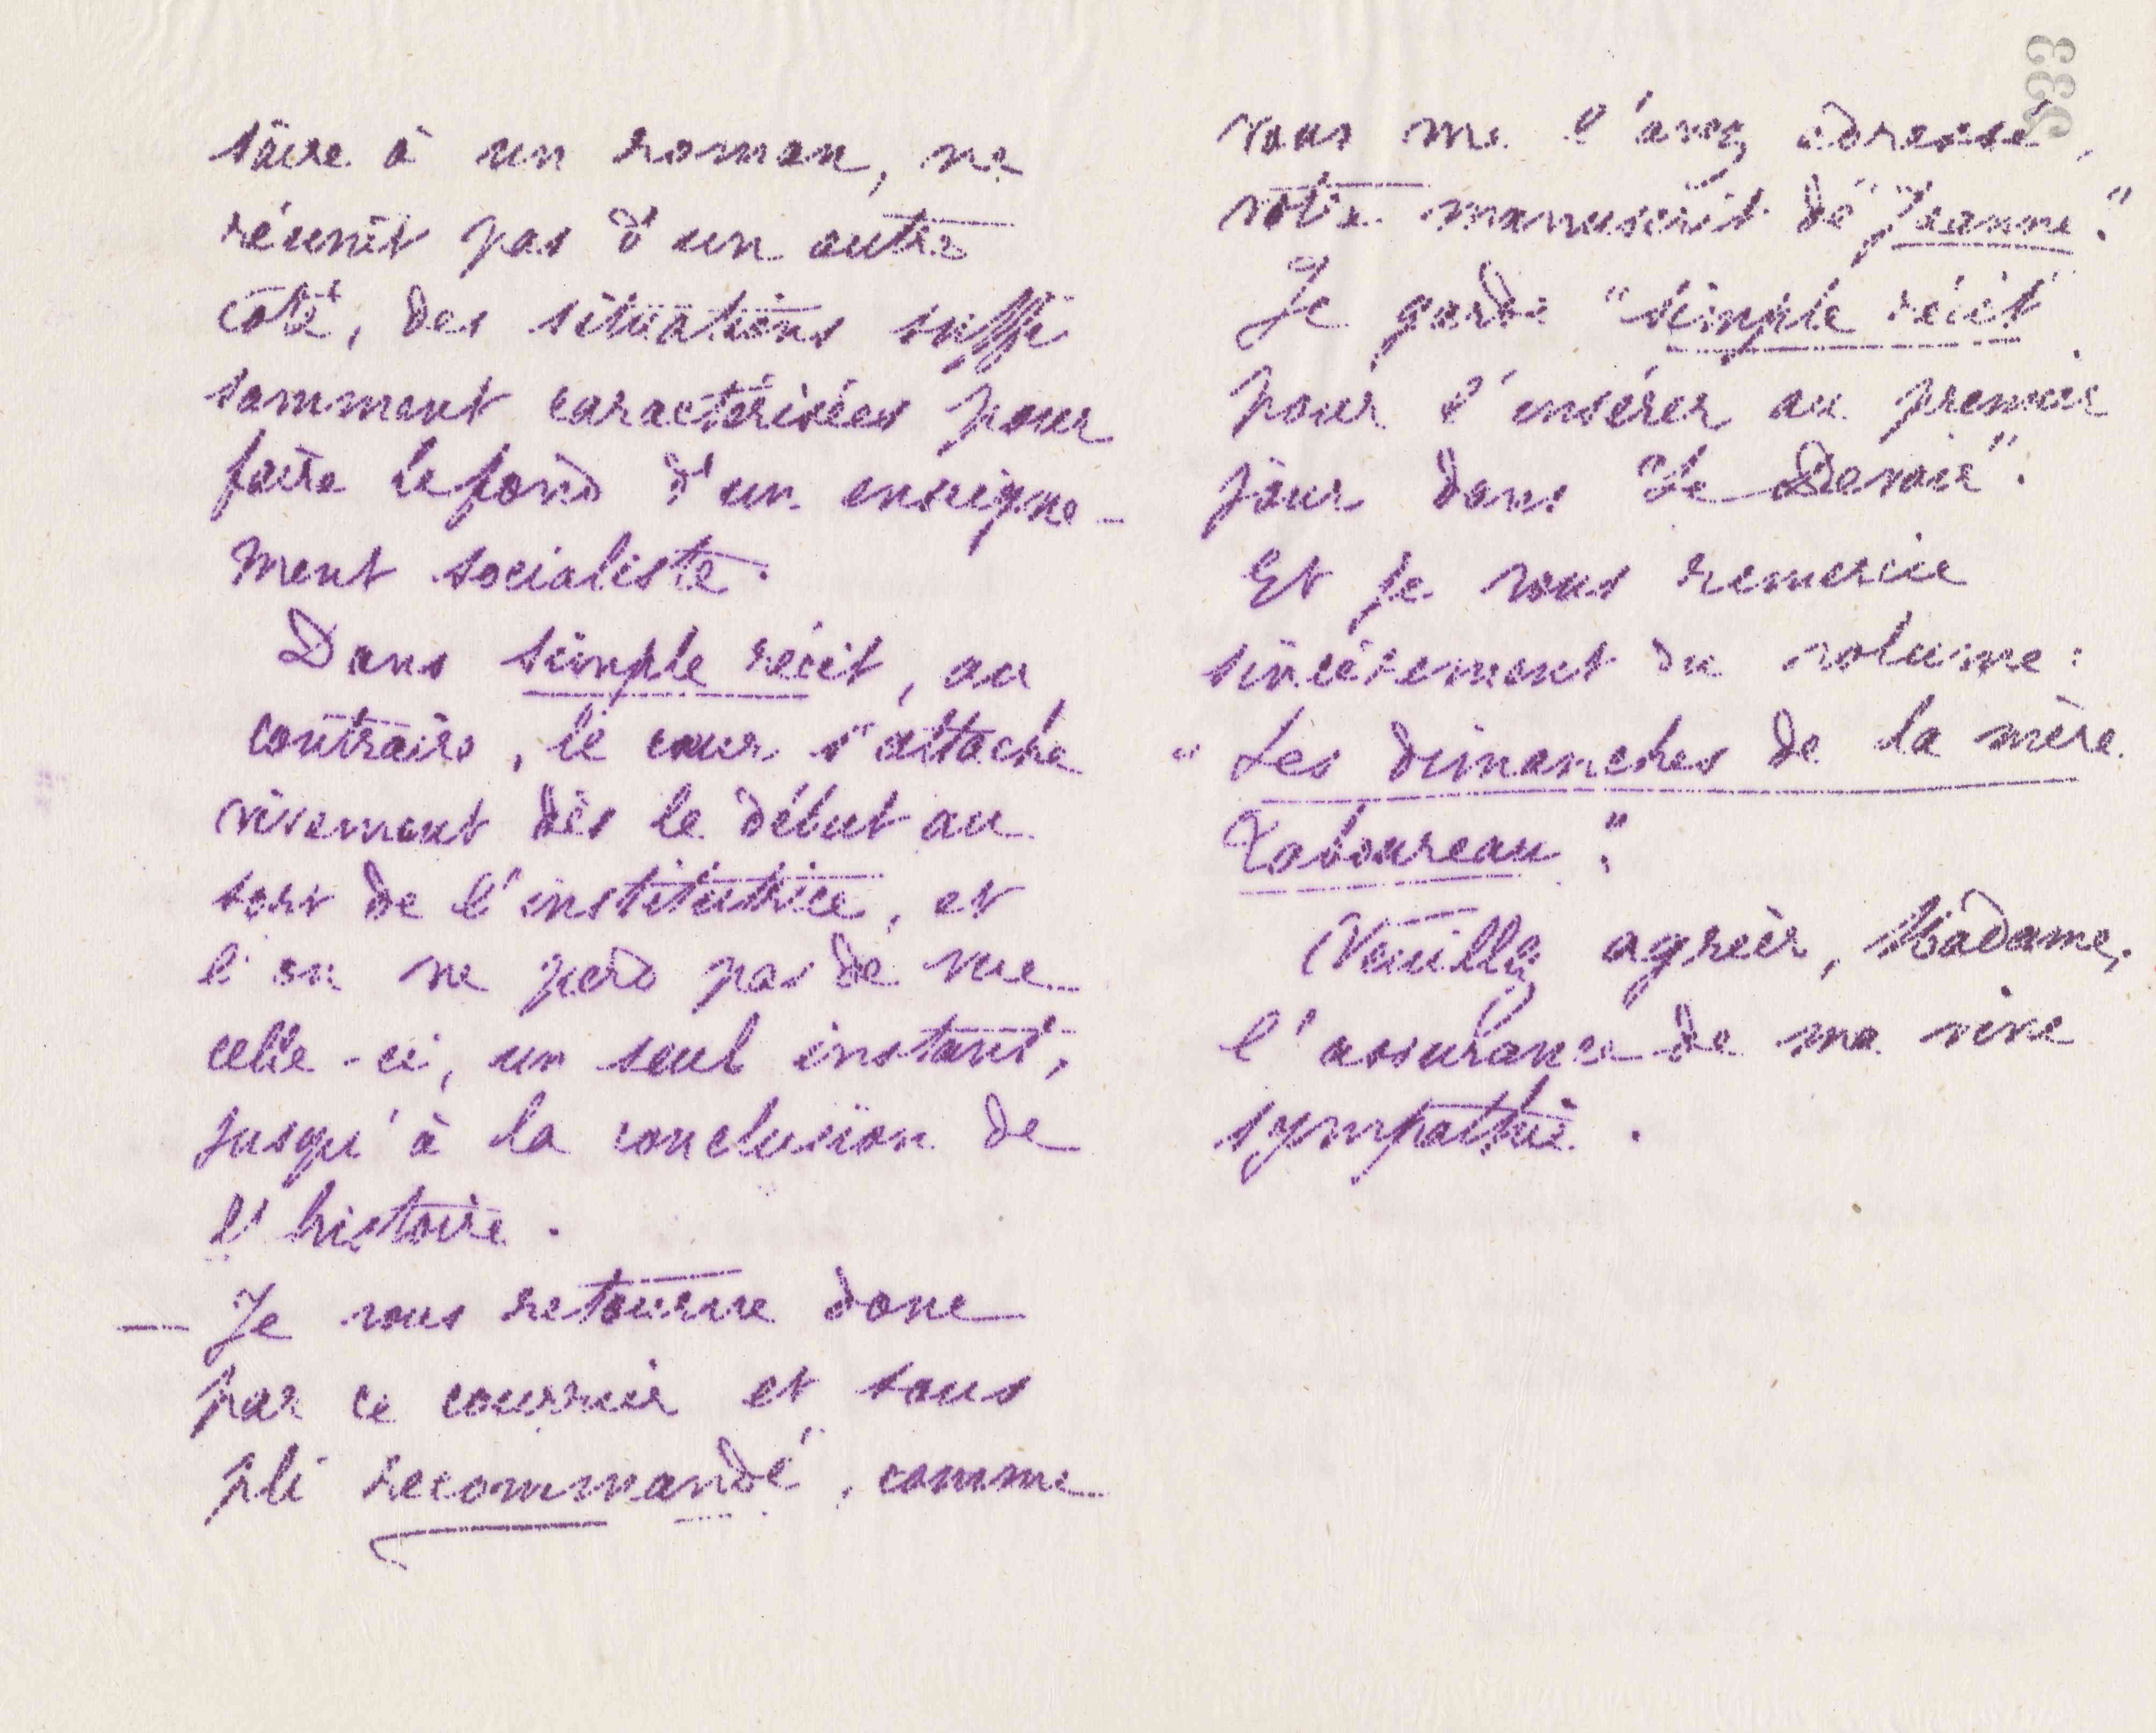 saire à un roman, ne
réunit pas d'un autre
côté, des situations suffi
samment caractérisées pour
faire le fond d'un enseigne-
ment socialiste.
Dans simple récit, au
contraire, le cœur s'attache
vivement dès le début au
sort de l'institutrice, et
l'on ne perd pas de vue
celle-ci, un seul instant,
jusqu'à la conclusion de
l'histoire.
— Je vous retourne donc
par ce courrier et sous
pli recommandé, comme
533
vous me l'avez adressé,
votre manuscrit de "Jeanne".
Je garde "simple récit"
pour l'insérer au premier
jour dans "Le Devoir".
Et je vous remercie
sincèrement du volume :
"Les dimanches de la mère
Taboureau".
Veuillez agréer, Madame,
l'assurance de ma vive
sympathie.